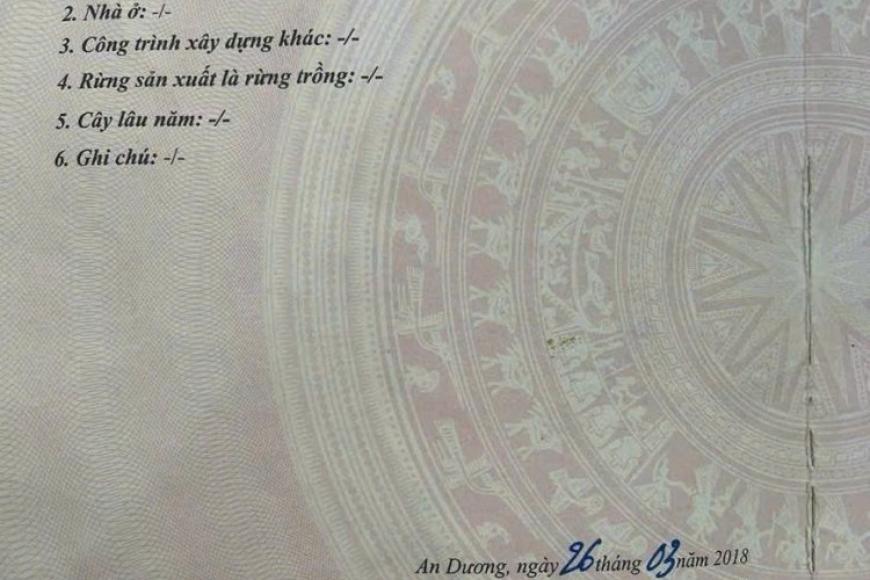 2. Nhà ở: -/-
3. Công trình xây dựng khác: -/-
4. Rừng sản xuất là rừng trồng: -/-
5. Cây lâu năm: -/-
6. Ghi chú: -/-
An Dương, ngày 26 tháng 03 năm 2018